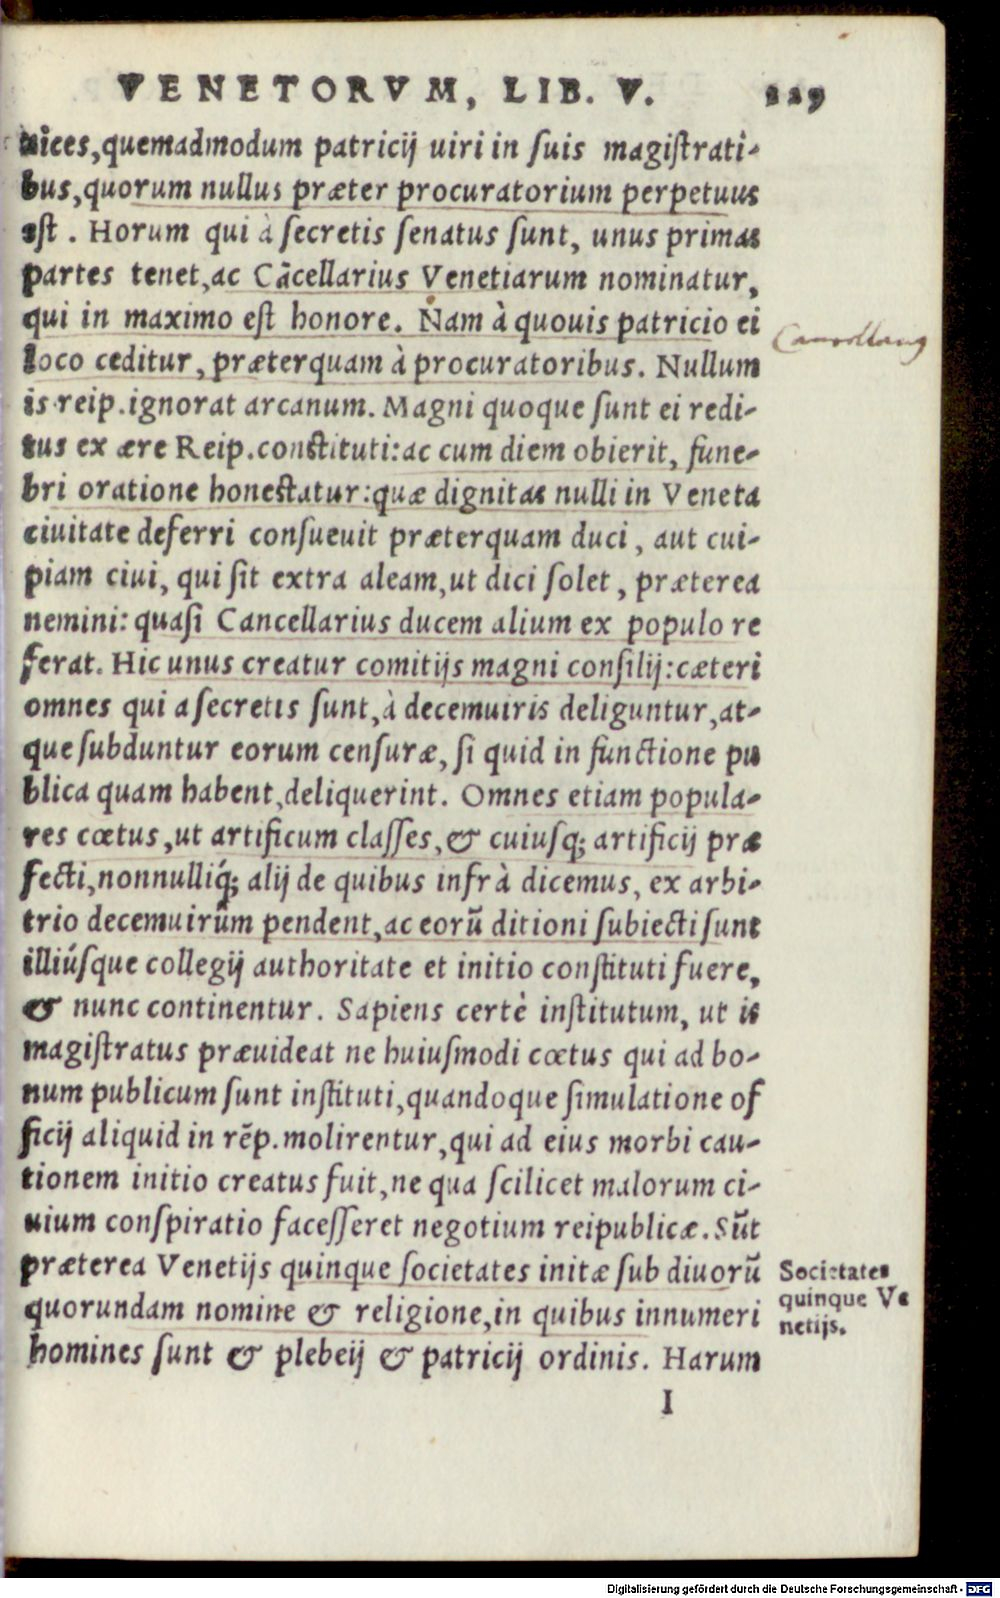 VENETORVM, LIB. V. 129
uices, quemadmodum patricij uiri in suis magistrati-
bus, quorum nullus præter procuratorium perpetuus
est. Horum qui à secretis senatus sunt, unus primas
partes tenet, ac Cãcellarius Venetiarum nominatur,
qui in maximo est honore. Nam à quouis patricio ei
loco ceditur, præterquam à procuratoribus. Nullum
is reip. ignorat arcanum. Magni quoque sunt ei redi-
tus ex ære Reip. constituti: ac cum diem obierit, fune-
bri oratione honestatur: quæ dignitas nulli in Veneta
ciuitate deferri consueuit præterquam duci, aut cui-
piam ciui, qui sit extra aleam, ut dici solet, præterea
nemini: quasi Cancellarius ducem alium ex populo re
ferat. Hic unus creatur comitijs magni consilij: cæteri
omnes qui a secretis sunt, à decemuiris deliguntur, at-
que subduntur eorum censuræ, si quid in functione pu
blica quam habent, deliquerint. Omnes etiam popula-
res cœtus, ut artificum classes, & cuiusq; artificij præ
fecti, nonnulliq́; alij de quibus infrà dicemus, ex arbi-
trio decemuirũm pendent, ac eorũ ditioni subiecti sunt
illiúsque collegij authoritate et initio constituti fuere,
& nunc continentur. Sapiens certè institutum, ut is
magistratus præuideat ne huiusmodi cœtus qui ad bo-
num publicum sunt instituti, quandoque simulatione of
ficij aliquid in rẽp. molirentur, qui ad eius morbi cau-
tionem initio creatus fuit, ne qua scilicet malorum ci-
uium conspiratio facesseret negotium reipublicæ. Sũt
præterea Venetijs quinque societates initæ sub diuorũ
quorundam nomine & religione, in quibus innumeri
homines sunt & plebeij & patricij ordinis. Harum
I
Societates
quinque Ve
netijs.
Digitalisierung gefördert durch die Deutsche Forschungsgemeinschaft - DFG